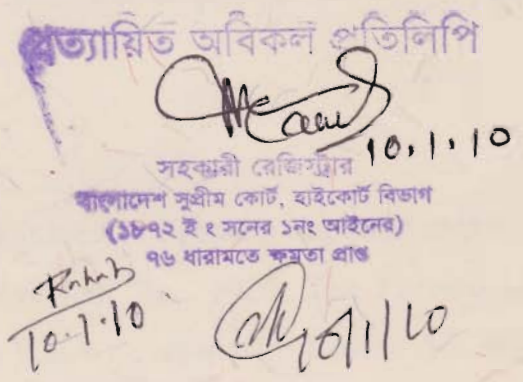 প্রত্যায়িত অবিকল প্রতিলিপি
10.1.10
সহকারী রেজিস্ট্রার
বাংলাদেশ সুপ্রীম কোর্ট, হাইকোর্ট বিভাগ
(১৮৭২ ই ং সনের ১নং আইনের)
৭৬ ধারামতে ক্ষমতা প্রাপ্ত
10.1.10
10/1/10